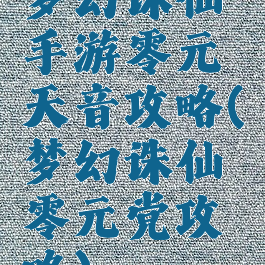 梦幻诛仙
手游零元
天音攻略(
梦幻诛仙
零元党攻
略)